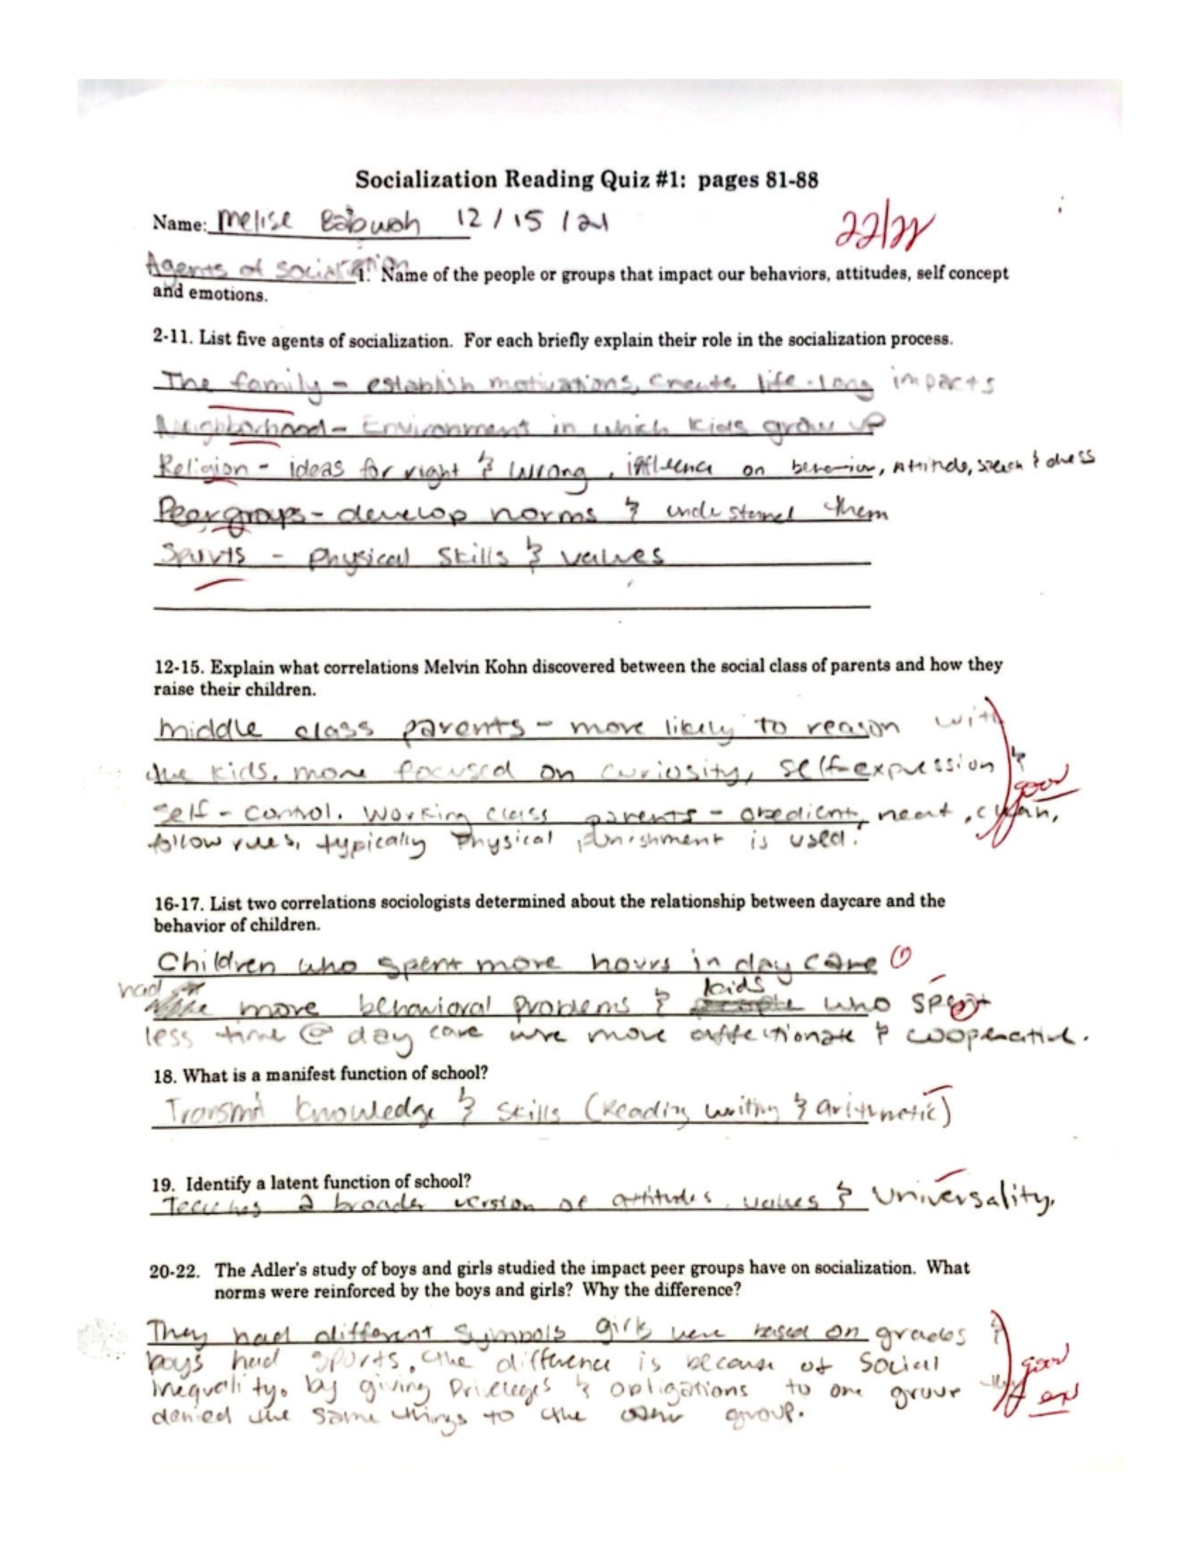 Socialization Reading Quiz #1: pages 81-88
Name: Melise Babwah 12/15/21
22/22
Agents of socialization 1. Name of the people or groups that impact our behaviors, attitudes, self concept
and emotions.
2-11. List five agents of socialization. For each briefly explain their role in the socialization process.
The family - establish motivations, create life-long impacts
Neighborhood - Environment in which kids grow up
Religion - ideas for right & wrong, influence on behavior, attitude, speech & dress
Peer groups - develop norms & understand them
Sports - Physical skills & values
12-15. Explain what correlations Melvin Kohn discovered between the social class of parents and how they
raise their children.
middle class parents - more likely to reason with
the kids. more focused on curiosity, self-expression &
self-control. Working class parents - obedient, neat, clean,
good
follow rules, typically physical punishment is used.
16-17. List two correlations sociologists determined about the relationship between daycare and the
behavior of children.
Children who spent more hours in day care
had more behavioral problems & kids who spent
less time @ day care were more affectionate & cooperative.
18. What is a manifest function of school?
Transmit knowledge & skills (reading writing & arithmetic)
19. Identify a latent function of school?
Teaches a broader version of attitudes, values & Universality.
20-22. The Adler's study of boys and girls studied the impact peer groups have on socialization. What
norms were reinforced by the boys and girls? Why the difference?
They had different symbols girls were based on grades &
boys had sports, the difference is because of social
good
inequality. by giving privileges & obligations to one group
denied the same things to the other group.